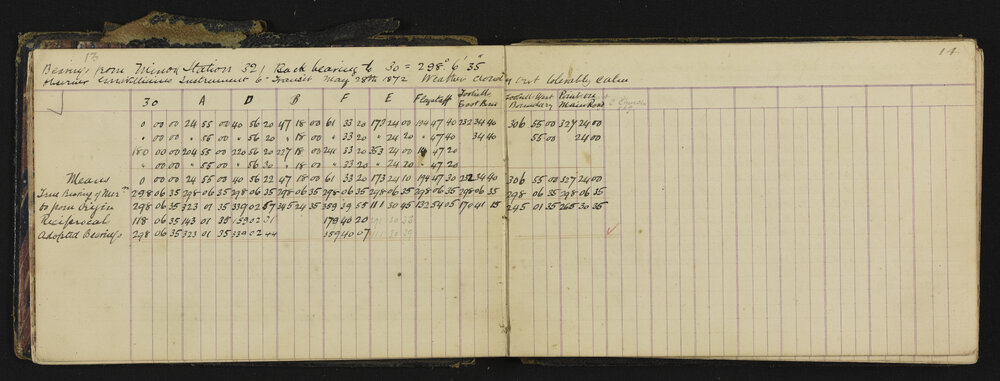 13
14
Bearings from Minor Station 32 / Back bearing to 30 = 298° 6' 35"
Instrument 6 in Transit May 28th 1872 Weather cloudy but calm
30 A D B F E Flagstaff Foothill East Bdy Foothill West Boundary Point on Main Road
0 00 00 24 55 00 40 56 20 47 18 00 61 33 20 173 24 00 194 47 40 232 34 40 306 55 00 327 24 00
" 00 00 " 55 00 " 56 20 " 18 00 " 33 20 " 24 20 " 47 40 34 40 55 00 24 00
180 00 00 204 55 00 220 56 20 227 18 00 241 33 20 353 24 00 14 47 20
" 00 00 " 55 00 " 56 30 " 18 00 " 33 20 " 24 20 " 47 20
Means 0 00 00 24 55 00 40 56 22 47 18 00 61 33 20 173 24 10 194 47 30 232 34 40 306 55 00 327 24 00
True Bearing of Mer 298 06 35 298 06 35 298 06 35 298 06 35 298 06 35 298 06 35 298 06 35 298 06 35 298 06 35 298 06 35
Do from Origin 298 06 35 323 01 35 339 02 57 345 24 35 359 39 55 111 30 45 132 54 05 170 41 15 245 01 35 265 30 35
Reciprocal 118 06 35 143 01 35 159 02 31 179 40 20
Adopted Bearings 298 06 35 323 01 35 339 02 44 359 40 07